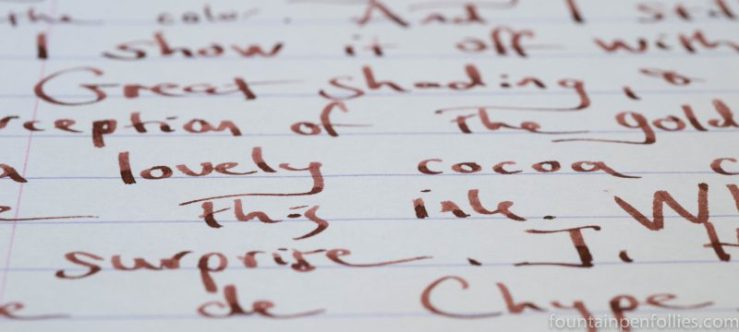 the color. And I still
I show it off with
Great shading, is
ception of the gold
a lovely cocoa c
this ink. Wh
surprise. J. H
e de Chype
fountainpenfollies.com